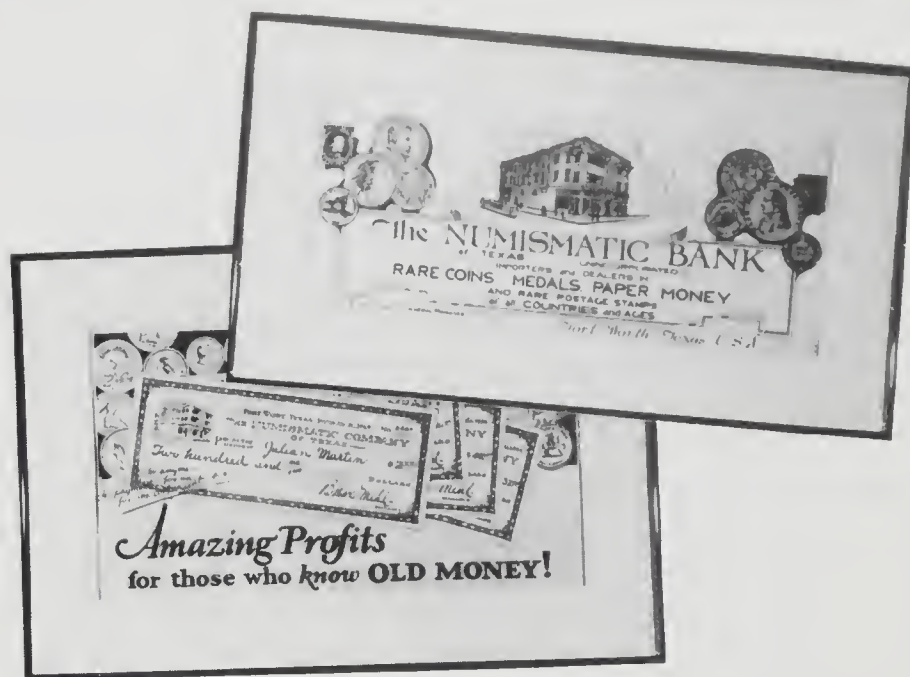 The NUMISMATIC BANK
OF TEXAS
IMPORTERS and DEALERS IN
RARE COINS MEDALS, PAPER MONEY
AND RARE POSTAGE STAMPS
of all COUNTRIES and AGES
Fort Worth, Texas, U.S.A.
FORT WORTH, TEXAS
THE NUMISMATIC COMPANY
OF TEXAS
Julian Martin
Two hundred and
DOLLARS
NY
Amazing Profits
for those who know OLD MONEY!